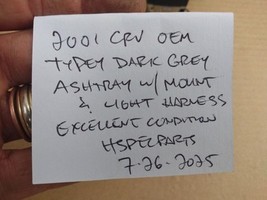 2001 CRV OEM
TYPEY DARK GREY
ASHTRAY W/ MOUNT
& LIGHT HARNESS
EXCELLENT CONDITION
HSPECPARTS
7-26-2025